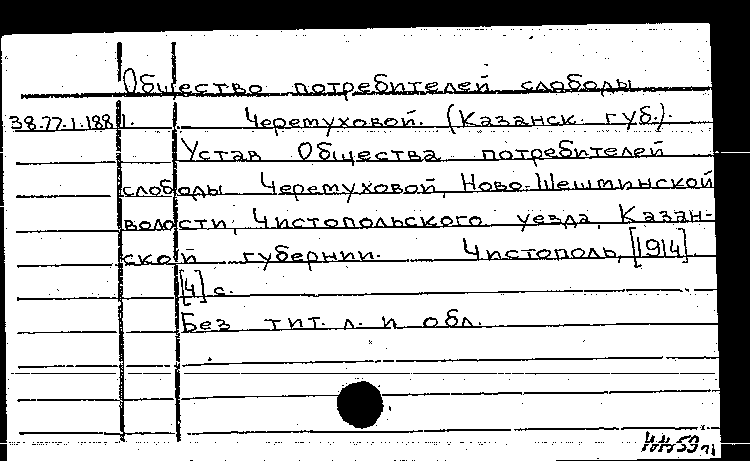 Общество потребителей слободы
38.77.1.188 1. Черемуховой. (Казанск. губ.).
Устав Общества потребителей
слободы Черемуховой, Ново-Шештинской
волости, Чистопольского уезда, Казан-
ской губернии. Чистополь, [1914].
[4] с.
Без тит. л. и обл.